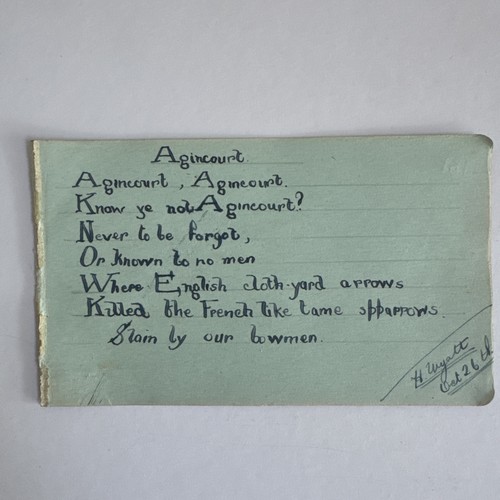 Agincourt.
Agincourt, Agincourt.
Know ye not Agincourt?
Never to be forgot,
Or known to no men
Where English cloth-yard arrows
Killed the French like tame spparrows.
Slain by our bowmen.
H Wyatt
Oct 26th